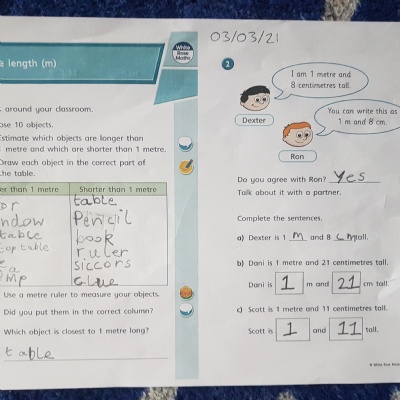 e length (m)
White
Rose
Maths
around your classroom.
ose 10 objects.
Estimate which objects are longer than
metre and which are shorter than 1 metre.
Draw each object in the correct part of
the table.
er than 1 metre
Shorter than 1 metre
table
ndow
Pencil
table
book
top table
ruler
siccors
Glue
Use a metre ruler to measure your objects.
Did you put them in the correct column?
Which object is closest to 1 metre long?
table
03/03/21
2
I am 1 metre and
8 centimetres tall.
Dexter
You can write this as
1 m and 8 cm.
Ron
Do you agree with Ron? Yes
Talk about it with a partner.
Complete the sentences.
a) Dexter is 1 m and 8 cm tall.
b) Dani is 1 metre and 21 centimetres tall.
Dani is 1 m and 21 cm tall.
c) Scott is 1 metre and 11 centimetres tall.
Scott is 1 and 11 tall.